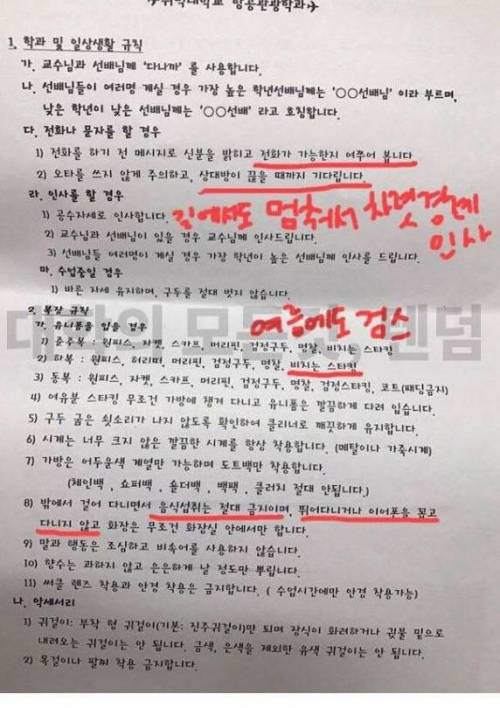 항공관광학과
1. 학과 및 일상생활 규칙
가. 교수님과 선배님께 '다나까' 를 사용합니다.
나. 선배님들이 여러명 계실 경우 가장 높은 학년선배님께는 '○○선배님' 이라 부르며,
낮은 학년이 낮은 선배님께는 '○○선배' 라고 호칭합니다.
다. 전화나 문자를 할 경우
1) 전화를 하기 전 메시지로 신분을 밝히고 전화가 가능한지 여쭈어 봅니다
2) 오타를 쓰지 않게 주의하고, 상대방이 끊을 때까지 기다립니다
라. 인사를 할 경우
1) 공수자세로 인사합니다. 길에서도 멈춰서 차렷경례
인사
2) 교수님과 선배님이 있을 경우 교수님께 인사드립니다.
3) 선배님들 여러명이 계실 경우 가장 학년이 높은 선배님께 인사를 드립니다.
마. 수업중일 경우
1) 바른 자세 유지하며, 구두를 절대 벗지 않습니다.
2. 복장 규칙
가. 유니폼을 입을 경우 여름에도 검스
1) 춘추복 : 원피스, 자켓, 스카프, 머리핀, 검정구두, 명찰, 비치는 스타킹
2) 하복 : 원피스, 허리띠, 머리핀, 검정구두, 명찰, 비치는 스타킹
3) 동복 : 원피스, 자켓, 스카프, 머리핀, 검정구두, 명찰, 검정스타킹, 코트(패딩금지)
4) 여유분 스타킹 무조건 가방에 챙겨 다니고 유니폼은 깔끔하게 다려 입습니다.
5) 구두 굽은 쇳소리가 나지 않도록 확인하여 클리너로 깨끗하게 유지합니다.
6) 시계는 너무 크지 않은 깔끔한 시계를 항상 착용합니다. (메탈이나 가죽시계)
7) 가방은 어두운색 계열만 가능하며 도트백만 착용합니다.
(체인백 , 쇼퍼백 , 숄더백 , 백팩 , 클러치 절대 안됩니다.)
8) 밖에서 걸어 다니면서 음식섭취는 절대 금지이며, 뛰어다니거나 이어폰을 꽂고
다니지 않고 화장은 무조건 화장실 안에서만 합니다.
9) 말과 행동은 조심하고 비속어를 사용하지 않습니다.
10) 향수는 과하지 않고 은은하게 날 정도만 뿌립니다.
11) 써클 렌즈 착용과 안경 착용은 금지합니다. ( 수업시간에만 안경 착용가능)
나. 악세서리
1) 귀걸이: 부착 형 귀걸이(기본: 진주귀걸이)만 되며 장식이 화려하거나 귓불 밑으로
내려오는 귀걸이는 안 됩니다. 금색, 은색을 제외한 유색 귀걸이는 안 됩니다.
2) 목걸이나 팔찌 착용 금지합니다.